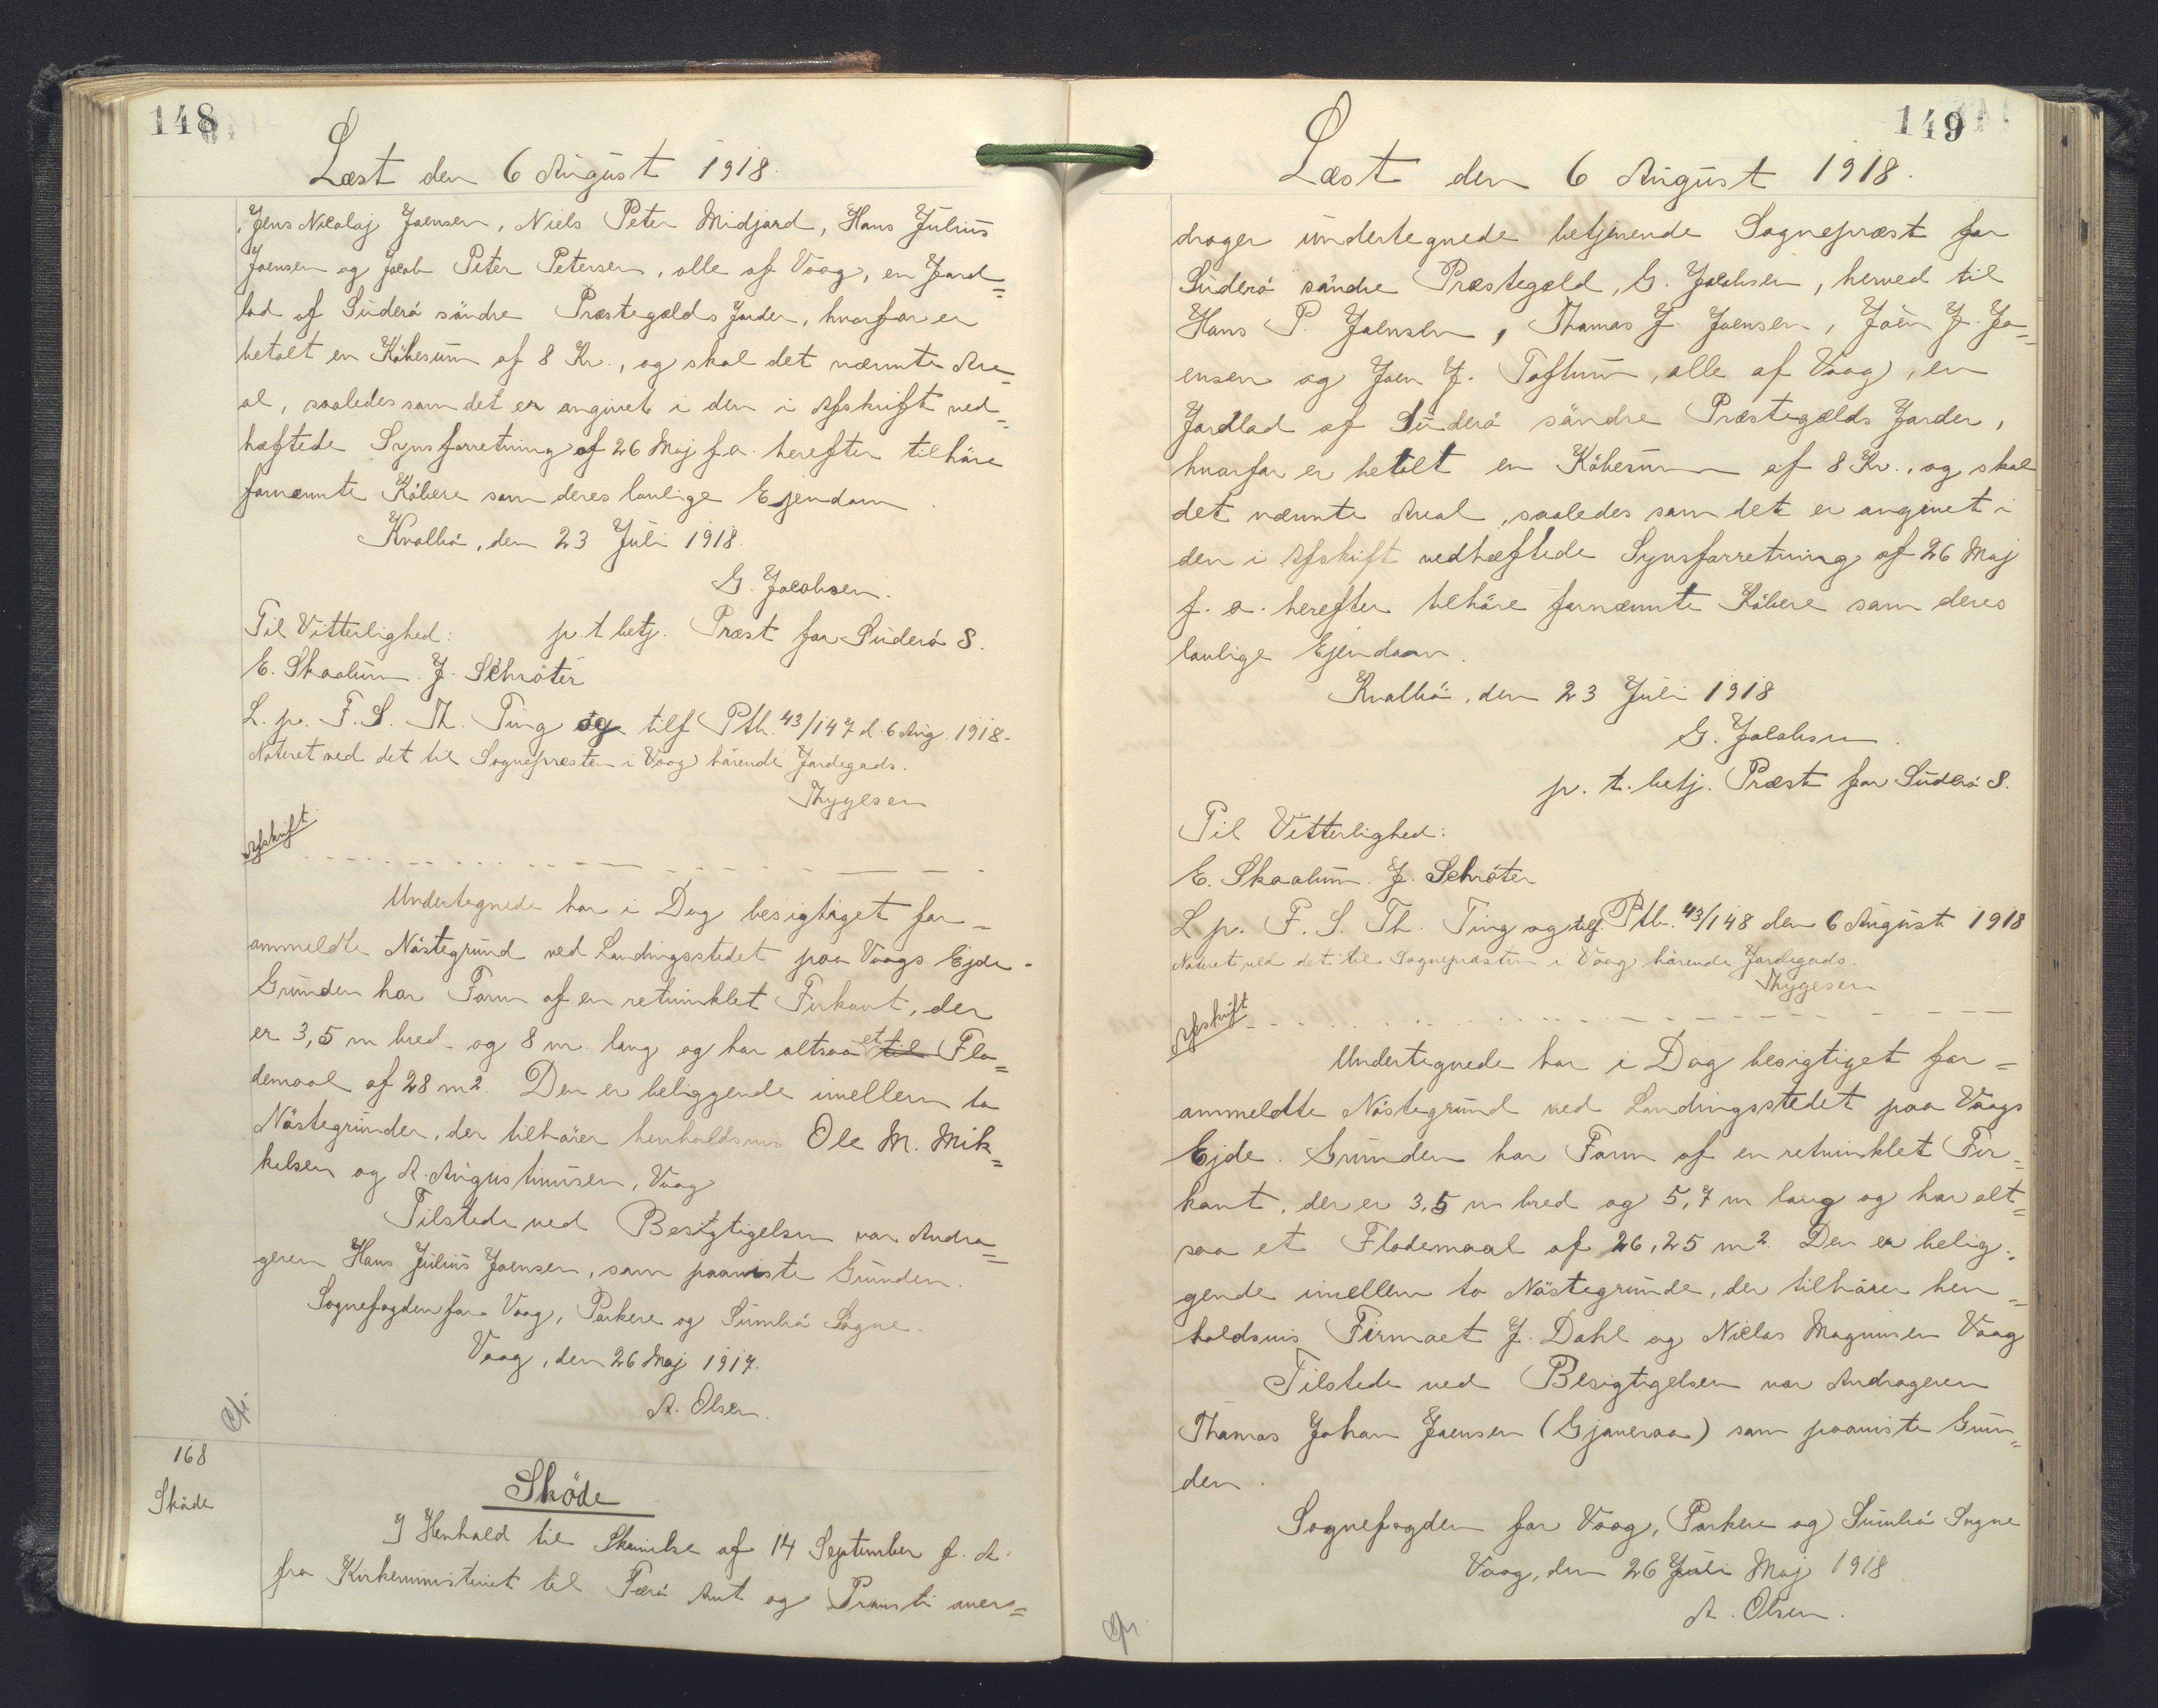 148
Læst den 6 August 1918.
Jens Nicolaj Joensen, Niels Peter Midjord, Hans Julius
Joensen og Jacob Peter Petersen, alle af Vaag, en Jord=
lod af Suderö söndre Præstegælds Jorder, hvorfor er
betalt en Köbesum af 8 Kr., og skal det nævnte Are=
al, saaledes som det er angivet i den i Afskrift ved=
hæftede Synsforretning af 26 Maj f.a. herefter tilhöre
fornævnte Köbere som deres lovlige Ejendom.
Kvalbö, den 23 Juli 1918.
G. Jacobsen.
Til Vitterlighed: p. t. betj. Præst for Suderö S.
E. Skaalum. J. Schröter
L. p. F. S. Th. Ting og tilf Ptb. 43/147 d. 6 Aug. 1918.
Noteret ved det til Sognepræsten i Vaag hörende Jordegods.
Thygesen
Afskrift.
Undertegnede har i Dag besigtiget for=
ammeldte Nöstegrund ved Landingsstedet paa Vaags Ejde.
Grunden har Form af en retvinklet Firkant, der
er 3,5 m bred og 8 m. lang og har altsaa et til Fla=
demaal af 28 m2. Den er beliggende imellem to
Nöstegrunder, der tilhörer henholdsvis Ole M. Mik=
kelsen og A. Augustinusen, Vaag
Tilstede ved Besigtigelsen var Andra=
geren Hans Julius Joensen, som paaviste Grunden.
Sognefogden for Vaag, Porkere og Sumbö Sogne.
Vaag, den 26 Maj 1917.
A. Olsen.
168
Sköde
Sköde
I Henhold til Skrivelse af 14 September f. A.
fra Kirkeministeriet til Færö Amt og Provsti over=
149
Læst den 6 August 1918.
drager undertegnede betjenende Sognepræst for
Suderö söndre Præstegæld, G. Jacobsen, herved til
Hans P. Joensen, Thomas J. Joensen, Joen J. Jo=
ensen og Joen J. Toftum, alle af Vaag, en
Jordlod af Suderö söndre Præstegælds Jorder,
hvorfor er betalt en Köbesum af 8 Kr., og skal
det nævnte Areal, saaledes som det er angivet i
den i Afskrift vedhæftede Synsforretning af 26 Maj
f. a. herefter tilhöre fornævnte Köbere som deres
lovlige Ejendom.
Kvalbö, den 23 Juli 1918
G. Jacobsen.
p. t. betj. Præst for Suderö S.
Til Vitterlighed:
E. Skaalum. J. Schröter
L. p. F. S. Th. Ting og tilf. Ptb. 43/148 den 6 August 1918
Noteret ved det til Sognepræsten i Vaag hörende Jordegods.
Thygesen
Afskrift
Undertegnede har i Dag besigtiget for=
ammeldte Nöstegrund ved Landingsstedet paa Vaags
Ejde. Grunden har Form af en retvinklet Fir=
kant, der er 3,5 m bred og 5,7 m lang og har alt=
saa et Flademaal af 26,25 m2. Den er belig=
gende imellem to Nöstegrunde, der tilhörer hen=
holdsvis Firmaet J. Dahl og Niclas Magnusen Vaag
Tilstede ved Besigtigelsen var Andrageren
Thomas Johan Joensen (Gjaneraa) som paaviste Grun=
den.
Sognefogden for Vaag, Porkere og Sumbö Sogne
Vaag, den 26 Juli Maj 1918
A. Olsen.